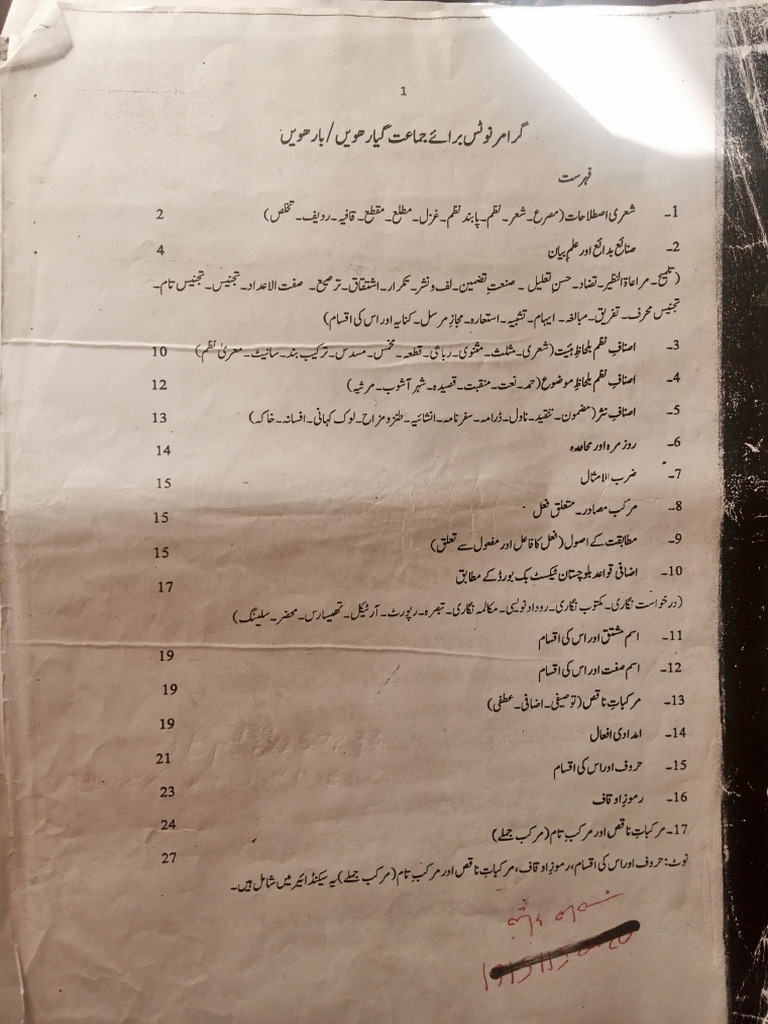 1
گرامر نوٹس برائے جماعت گیارھویں/بارھویں
فہرست
1۔ شعری اصطلاحات (مصرع۔ شعر۔ نظم۔ پابند نظم۔ غزل۔ مطلع۔ مقطع۔ قافیہ۔ ردیف۔ تخلص) 2
2۔ صنائع بدائع اور علم بیان 4
(تلمیح۔ مراعاۃ النظیر۔ تضاد۔ حسن تعلیل ۔ صنعتِ تضمین۔ لف و نشر۔ تکرار۔ اشتقاق۔ ترصیع۔ صفت الاعداد۔ تجنیس۔ تجنیس تام۔
تجنیس محرف۔ تفریق۔ مبالغہ۔ ایہام۔ تشبیہ۔ استعارہ۔ مجاز مرسل۔ کنایہ اور اس کی اقسام)
3۔ اصنافِ نظم بلحاظِ ہیئت (شعری۔ مثلث۔ مثنوی۔ رباعی۔ قطعہ۔ مخمس۔ مسدس۔ ترکیب بند۔ سانیٹ۔ معریٰ نظم) 10
4۔ اصنافِ نظم بلحاظِ موضوع (حمد۔ نعت۔ منقبت۔ قصیدہ۔ شہر آشوب۔ مرثیہ) 12
5۔ اصنافِ نثر (مضمون۔ تنقید۔ ناول۔ ڈرامہ۔ سفرنامہ۔ انشائیہ۔ طنز و مزاح۔ لوک کہانی۔ افسانہ۔ خاکہ) 13
6۔ روزمرہ اور محاورہ 14
7۔ ضرب الامثال 15
8۔ مرکب مصادر۔ متعلق فعل 15
9۔ مطابقت کے اصول (فعل کا فاعل اور مفعول سے تعلق) 15
10۔ اضافی قواعد بلوچستان ٹیکسٹ بک بورڈ کے مطابق 17
(درخواست نگاری۔ مکتوب نگاری۔ روداد نویسی۔ مکالمہ نگاری۔ تبصرہ۔ رپورٹ۔ آرٹیکل۔ تھیسارس۔ محضر۔ سلینگ)
11۔ اسم مشتق اور اس کی اقسام 19
12۔ اسم صفت اور اس کی اقسام 19
13۔ مرکباتِ ناقص (توصیفی۔ اضافی۔ عطفی) 19
14۔ امدادی افعال 21
15۔ حروف اور اس کی اقسام 23
16۔ رموزِ اوقاف 24
17۔ مرکباتِ ناقص اور مرکبِ تام (مرکب جملے) 27
نوٹ: حروف اور اس کی اقسام، رموزِ اوقاف، مرکباتِ ناقص اور مرکبِ تام (مرکب جملے) یہ سیکنڈ ائیر میں شامل ہیں۔